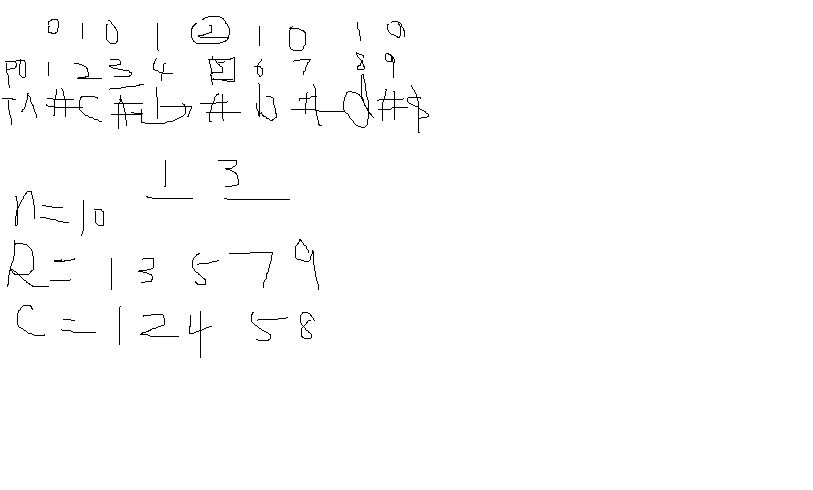 0 1 0 1 2 1 0 1 0
PO 1 2 3 4 5 6 7 8 9
TA # C # b # b # d # $
1 3
n = 10
R = 1 3 5 7 9
C = 1 2 4 5 8